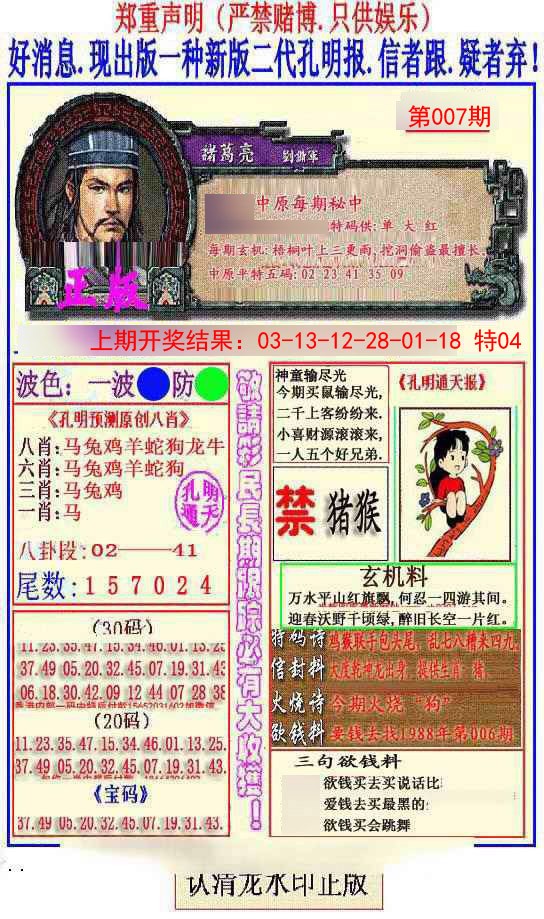 郑重声明（严禁赌博.只供娱乐）
好消息.现出版一种新版二代孔明报.信者跟.疑者弃！
第007期
諸葛亮 劉鐤軍
中原每期秘中
特码供: 单 大 红
每期玄机: 梧桐叶上三更雨, 挖洞偷盗最擅长.
中原平特五码: 02 23 41 35 09
正版
上期开奖结果：03-13-12-28-01-18 特04
波色：一波 防
《孔明预测原创八肖》
八肖: 马兔鸡羊蛇狗龙牛
六肖: 马兔鸡羊蛇狗
三肖: 马兔鸡
一肖: 马
孔明通天
八卦段: 02——41
尾数: 1 5 7 0 2 4
(30码)
11.23.35.47.15.34.46.01.13.25
37.49 05.20.32.45.07.19.31.43
06.18.30.42.09.12 44 07 28 38
(20码)
11.23.35.47.15.34.46.01.13.25.
37.49 05.20.32.45.07.19.31.43.
《宝码》
37.49 05.20.32.45.07.19.31.43.
敬請彩民長期跟踪必有大收獲！
神童输尽光
今期买鼠输尽光,
二千上客纷纷来.
小喜财源滚滚来,
一人五个好兄弟.
《孔明通天报》
禁 猪猴
玄机料
万水平山红旗飘, 何忍一四游其间。
迎春沃野千顷绿, 醉旧长空一片红。
特码诗 鸡猴联手包头尾, 乱七八糟来四九
信封料 大度乾神龙出身, 提供生肖: 猪,
火烧诗 今期火烧“狗”
欲钱料 要钱去找1988年第006期
三句欲钱料
欲钱买去买说话比
爱钱去买最黑的
欲钱买会跳舞
认清龙水印正版